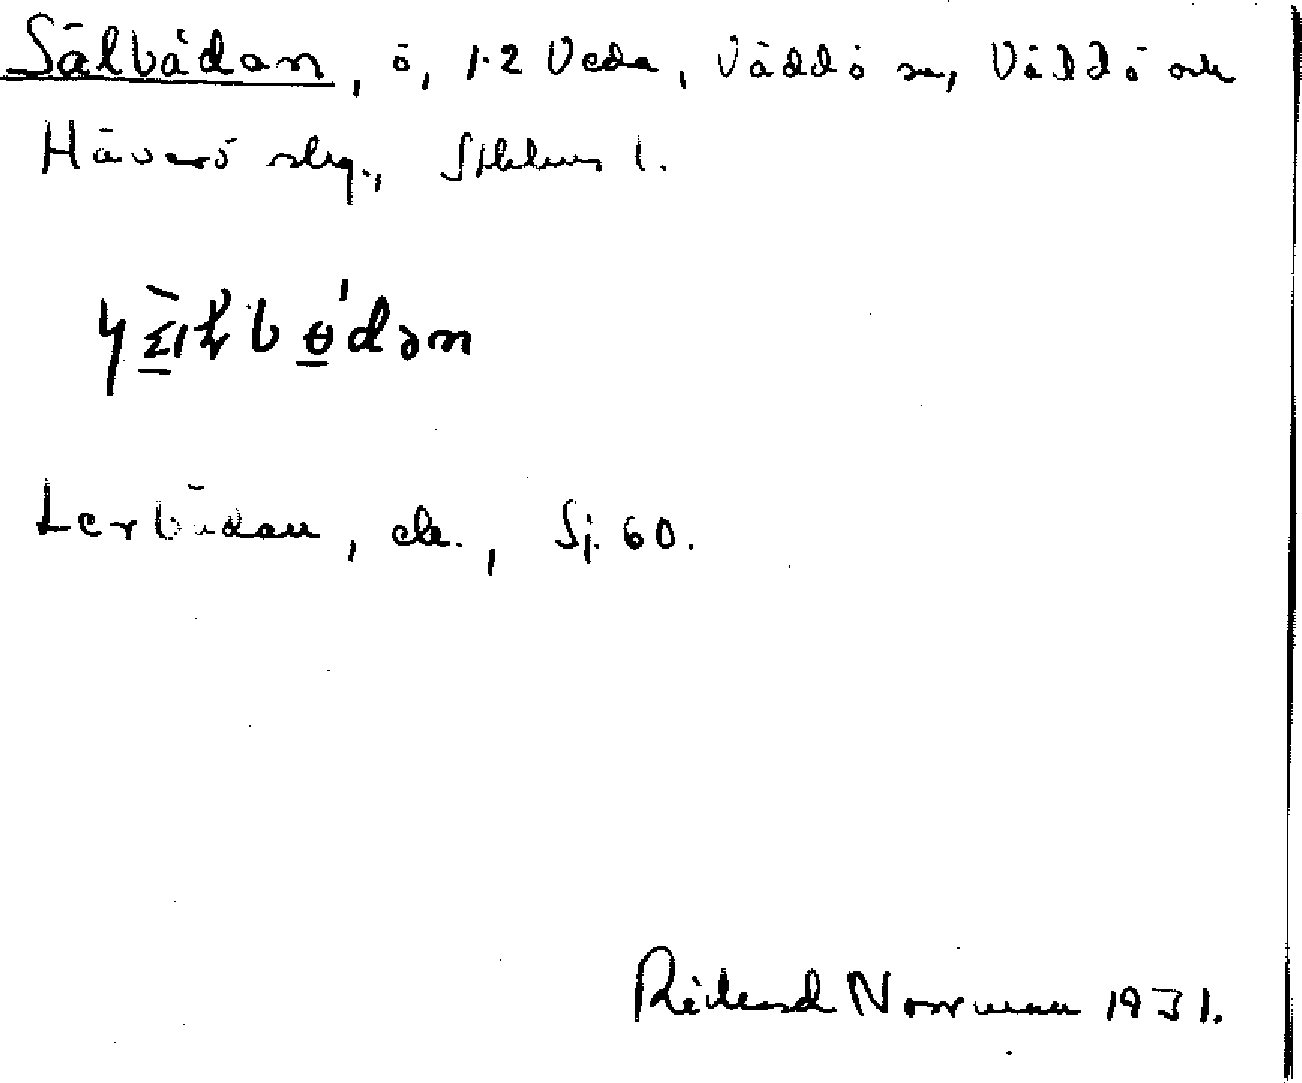 Sälbådan, ö, 1.2 Veda, Väddö sn, Väddö och
Häverö skg., Sthlms l.
Lerbådan, ek., Sj. 60.
Rickard Norrman 1931.